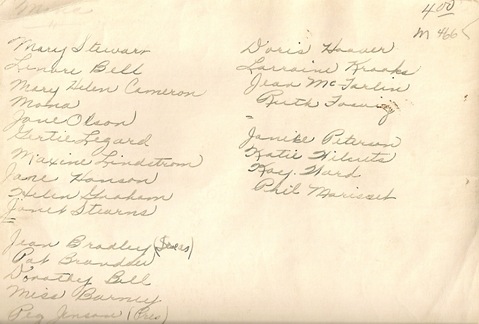 4.00
M 466
Mary Stewart
Lenore Bell
Mary Helen Cameron
Mama
Jane Olson
Gertie Legard
Maxine Lindstrom
Jane Hanson
Helen Graham
Janet Stearns
Jean Bradley (Sears)
Pat
Dorothy Bell
Miss Barney
Peg Jenson (Pres)
Doris Hoover
Lorraine Krooks
Jean McFarlin
Ruth
Janice Peterson
Katie
Kay Ward
Phil Morisset